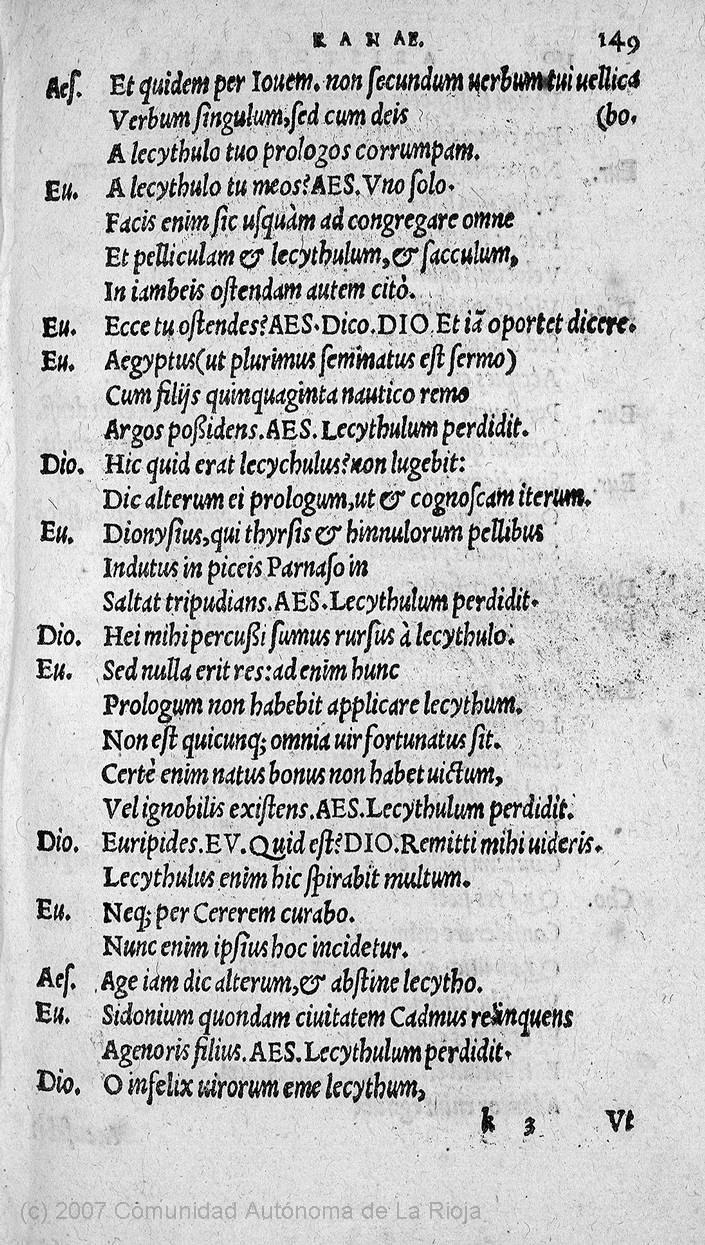 RANAE. 149
Aeſ. Et quidem per Iouem. non ſecundum uerbum tui uellica
Verbum ſingulum,ſed cum deis (bo.
A lecythulo tuo prologos corrumpam.
Eu. A lecythulo tu meos?AES.Vno ſolo.
Facis enim ſic uſquàm ad congregare omne
Et pelliculam & lecythulum,& ſacculum,
In iambeis oſtendam autem citò.
Eu. Ecce tu oſtendes?AES.Dico.DIO.Et iã oportet dicere.
Eu. Aegyptus(ut plurimus ſeminatus eſt ſermo)
Cum filijs quinquaginta nautico remo
Argos poßidens.AES.Lecythulum perdidit.
Dio. Hic quid erat lecychulus?non lugebit:
Dic alterum ei prologum,ut & cognoſcam iterum.
Eu. Dionyſius,qui thyrſis & hinnulorum pellibus
Indutus in piceis Parnaſo in
Saltat tripudians.AES.Lecythulum perdidit.
Dio. Hei mihi percußi ſumus rurſus à lecythulo.
Eu. Sed nulla erit res:ad enim hunc
Prologum non habebit applicare lecythum.
Non eſt quicunq; omnia uir fortunatus ſit.
Certè enim natus bonus non habet uictum,
Vel ignobilis exiſtens.AES.Lecythulum perdidit.
Dio. Euripides.EV.Quid eſt?DIO.Remitti mihi uideris.
Lecythulus enim hic ſpirabit multum.
Eu. Neq; per Cererem curabo.
Nunc enim ipſius hoc incidetur.
Aeſ. Age iam dic alterum,& abſtine lecytho.
Eu. Sidonium quondam ciuitatem Cadmus relinquens
Agenoris filius.AES.Lecythulum perdidit.
Dio. O infelix uirorum eme lecythum,
k 3 Vt
(c) 2007 Comunidad Autónoma de La Rioja